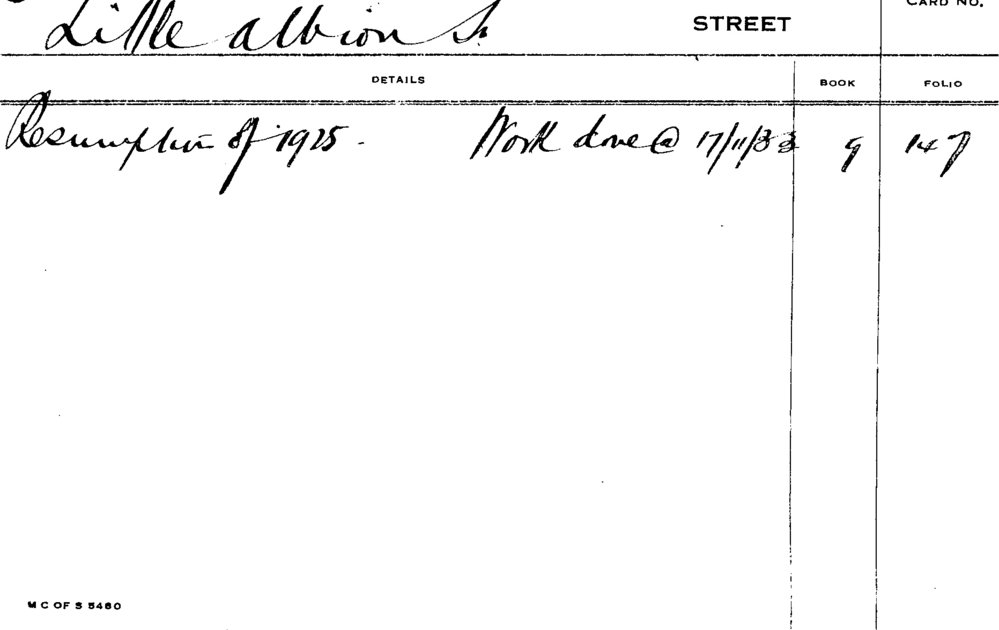 Little Albion St. STREET CARD NO.
DETAILS BOOK FOLIO
Resumption of 1925. Work done @ 17/11/33 9 147
M C OF S 5460